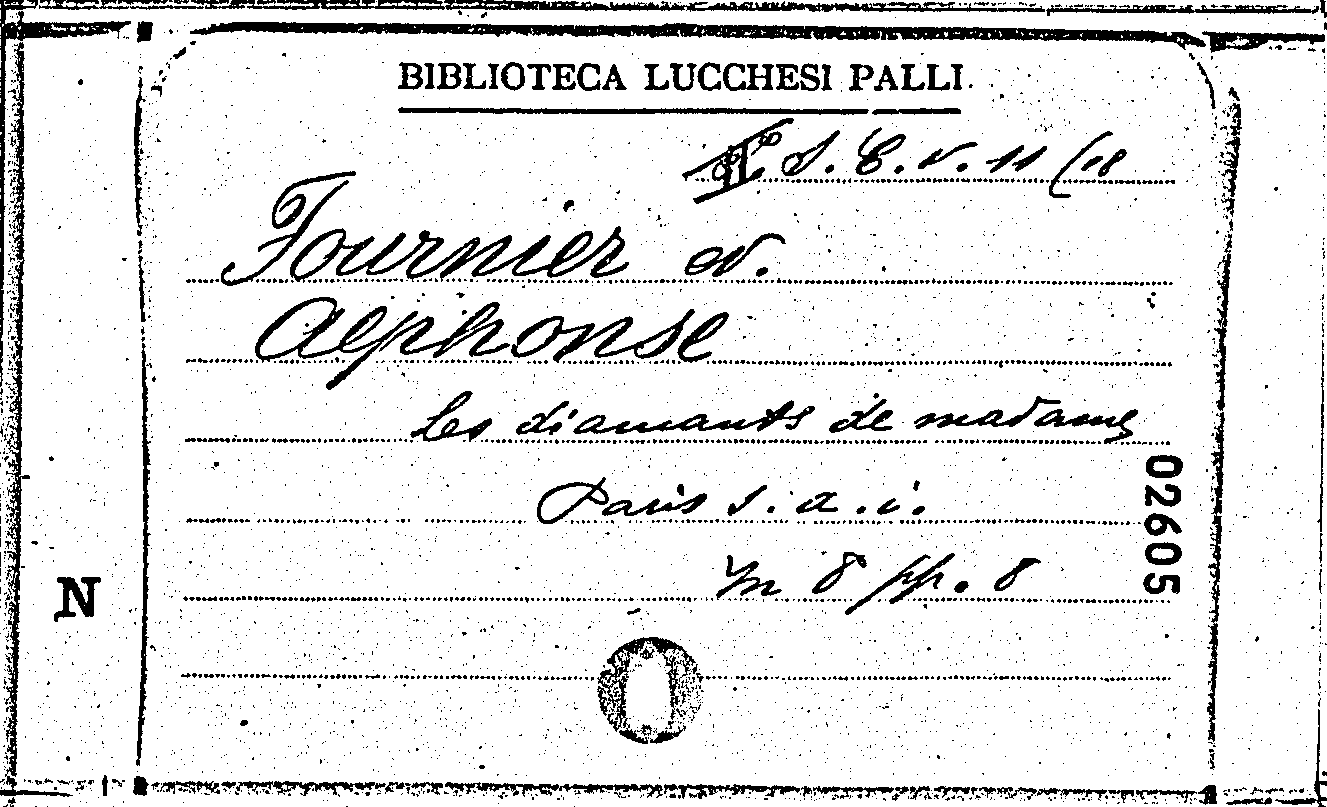 BIBLIOTECA LUCCHESI PALLI
S. C. v. 11 (18
Fournier
Alphonse
Les diamants de madame
Paris s. a. i.
In 8 pp. 8
02605
N